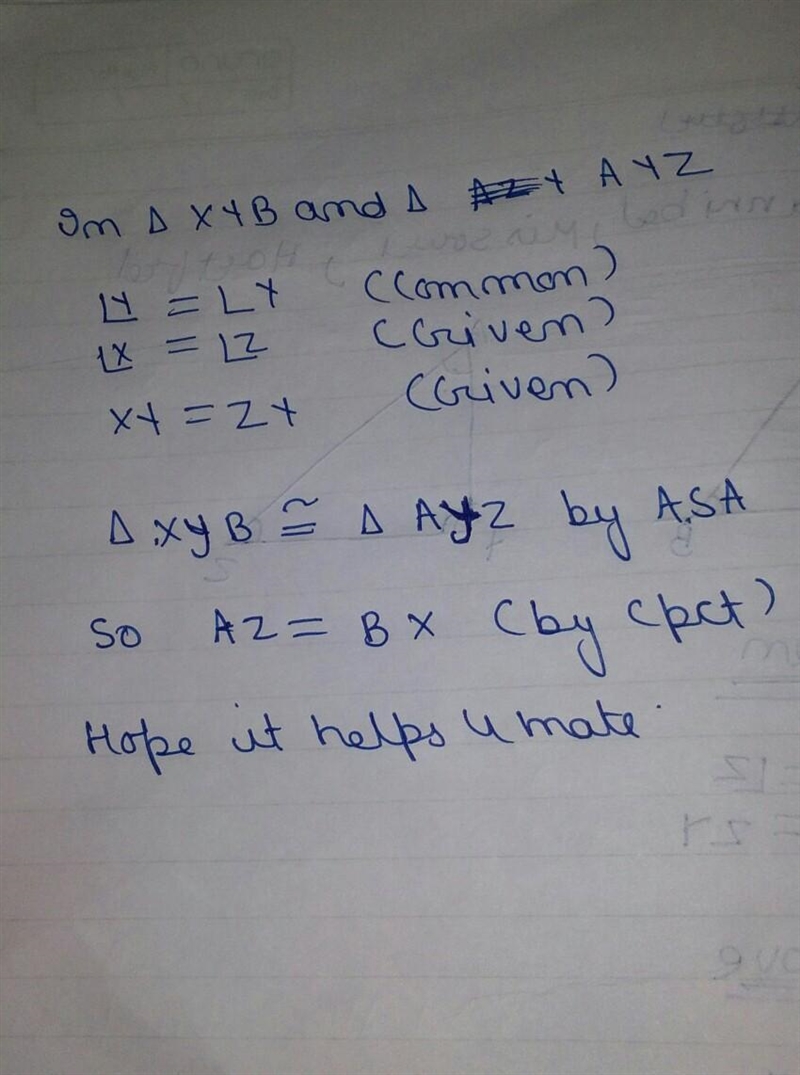 In Δ XYB and Δ AYZ
∠Y = ∠Y (Common)
∠X = ∠Z (Given)
XY = ZY (Given)
Δ XYB ≅ Δ AYZ by A.S.A
So AZ = BX (by Cpct)
Hope it helps u mate.